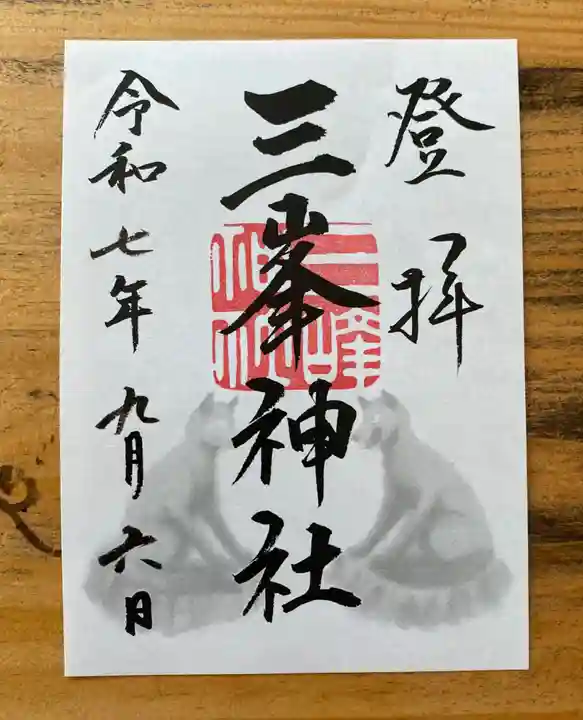 登拝
三峯神社
三峰神社
令和七年九月六日